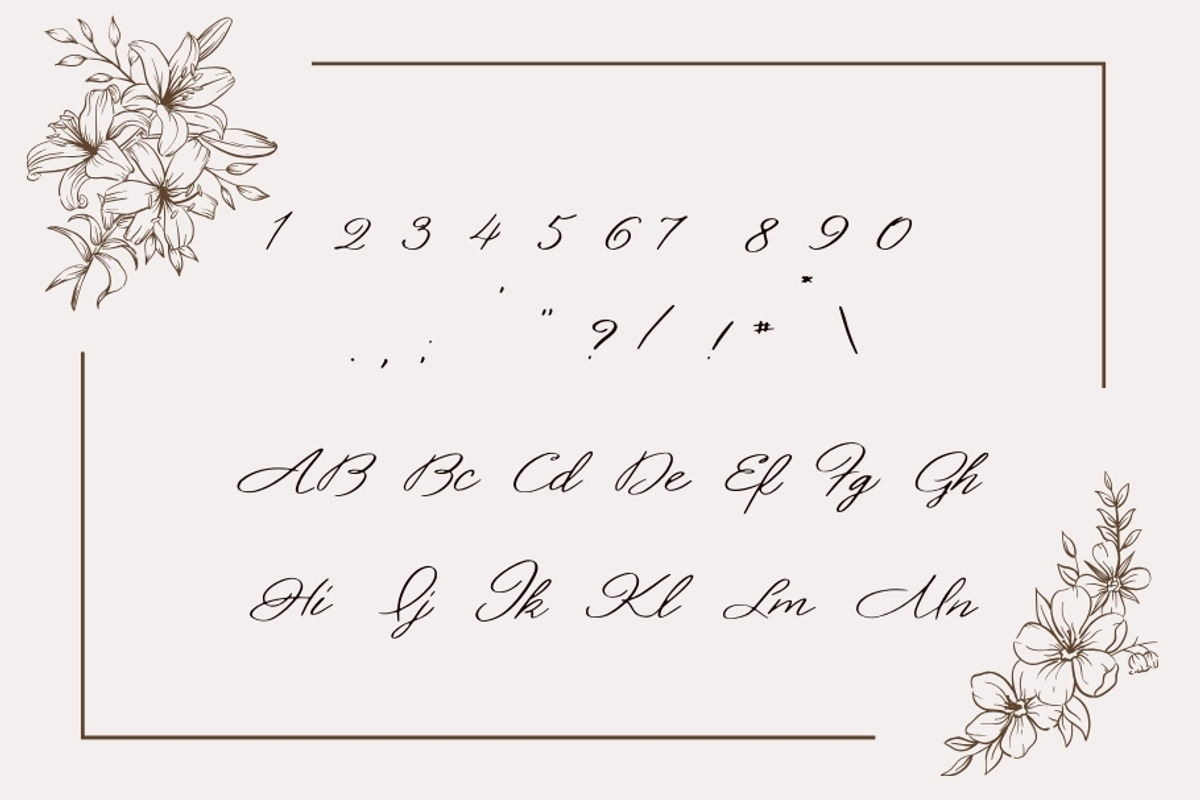 1 2 3 4 5 6 7 8 9 0
. , ; ' " ? / ! # * \
AB Bc Cd De Ef Fg Gh
Hi Ij Jk Kl Lm Mn